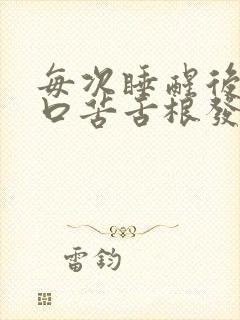 每次睡醒後
口苦舌根發
雷鈞